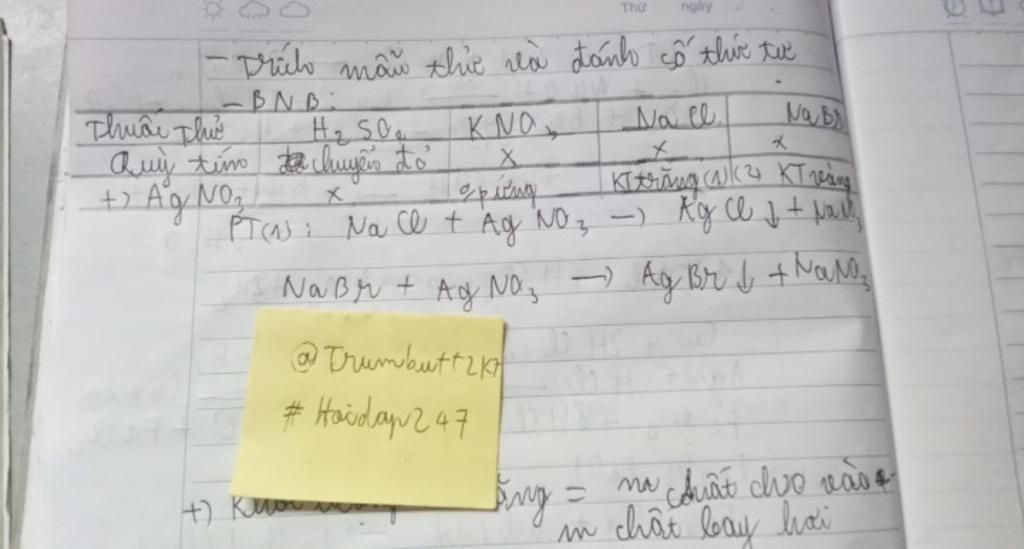 Thứ ngày
- Trích mẫu thử và đánh số thứ tự
- BNB:
Thuốc thử H₂SO₄ KNO₃ NaCl NaBr
Quỳ tím chuyển đỏ x x x
+) AgNO₃ x 0 p/ứng KT trắng (1) (2) KT vàng
PT(1): NaCl + AgNO₃ → AgCl ↓ + NaNO₃
NaBr + AgNO₃ → AgBr ↓ + NaNO₃
@Trumbutt2k7
#Hoidap247
+) = m chất cho vào +
m chất bay hơi